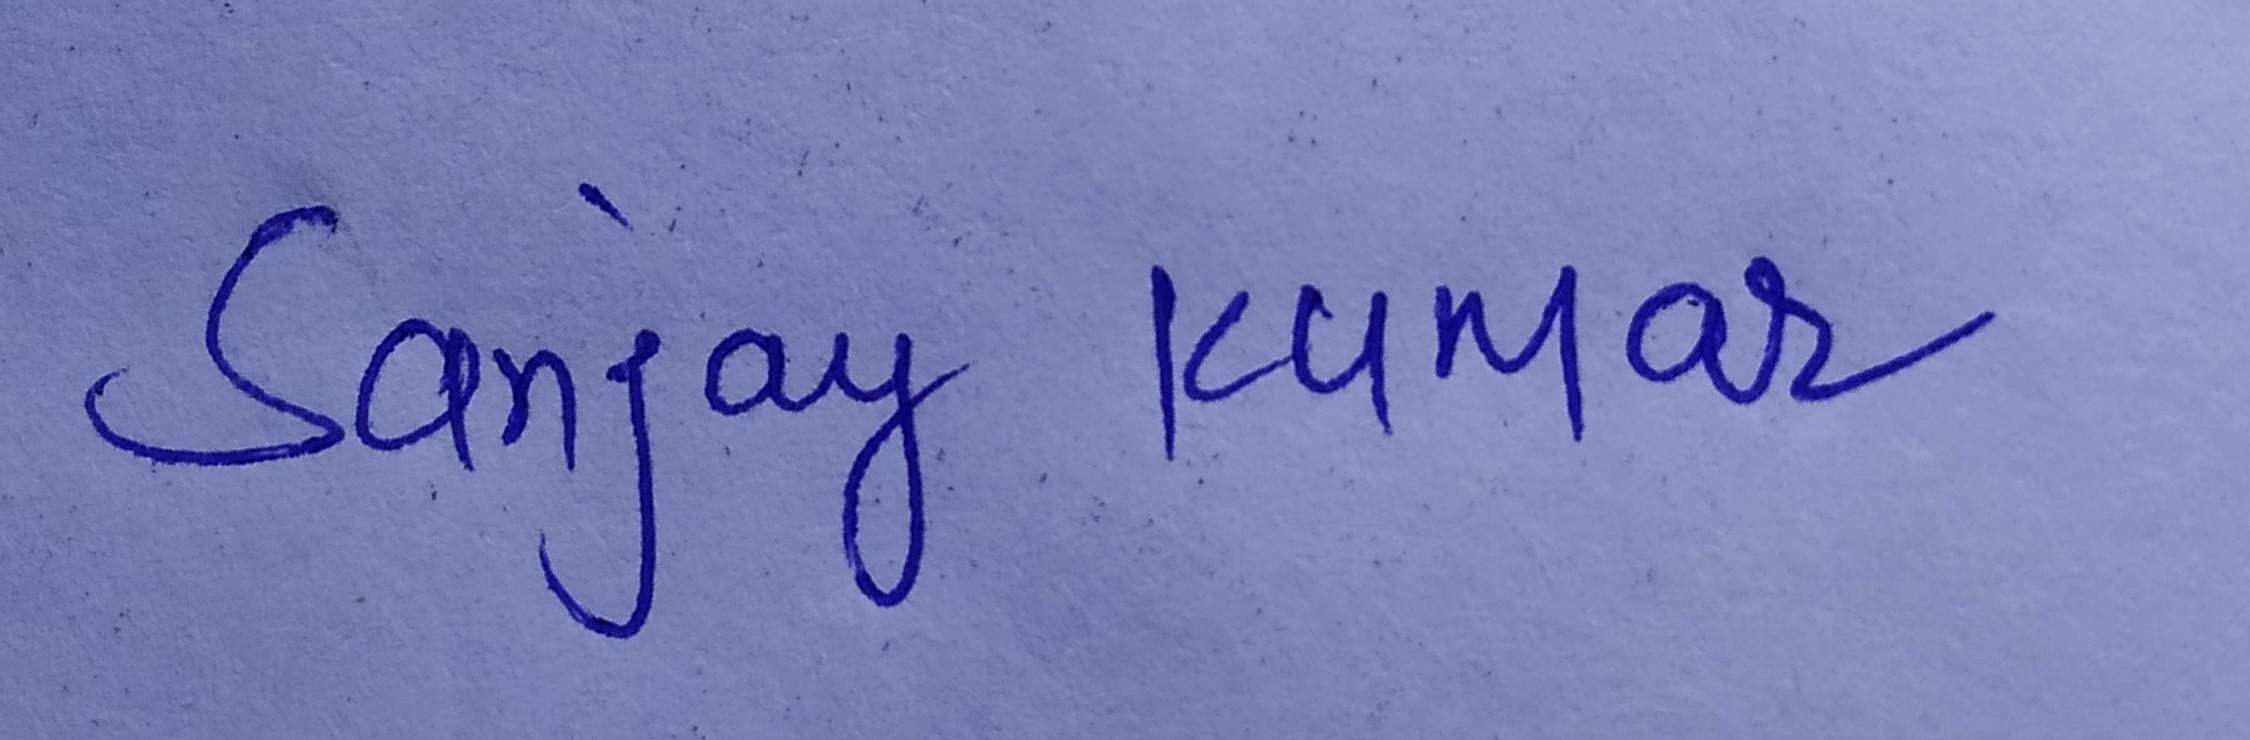 Sanjay Kumar